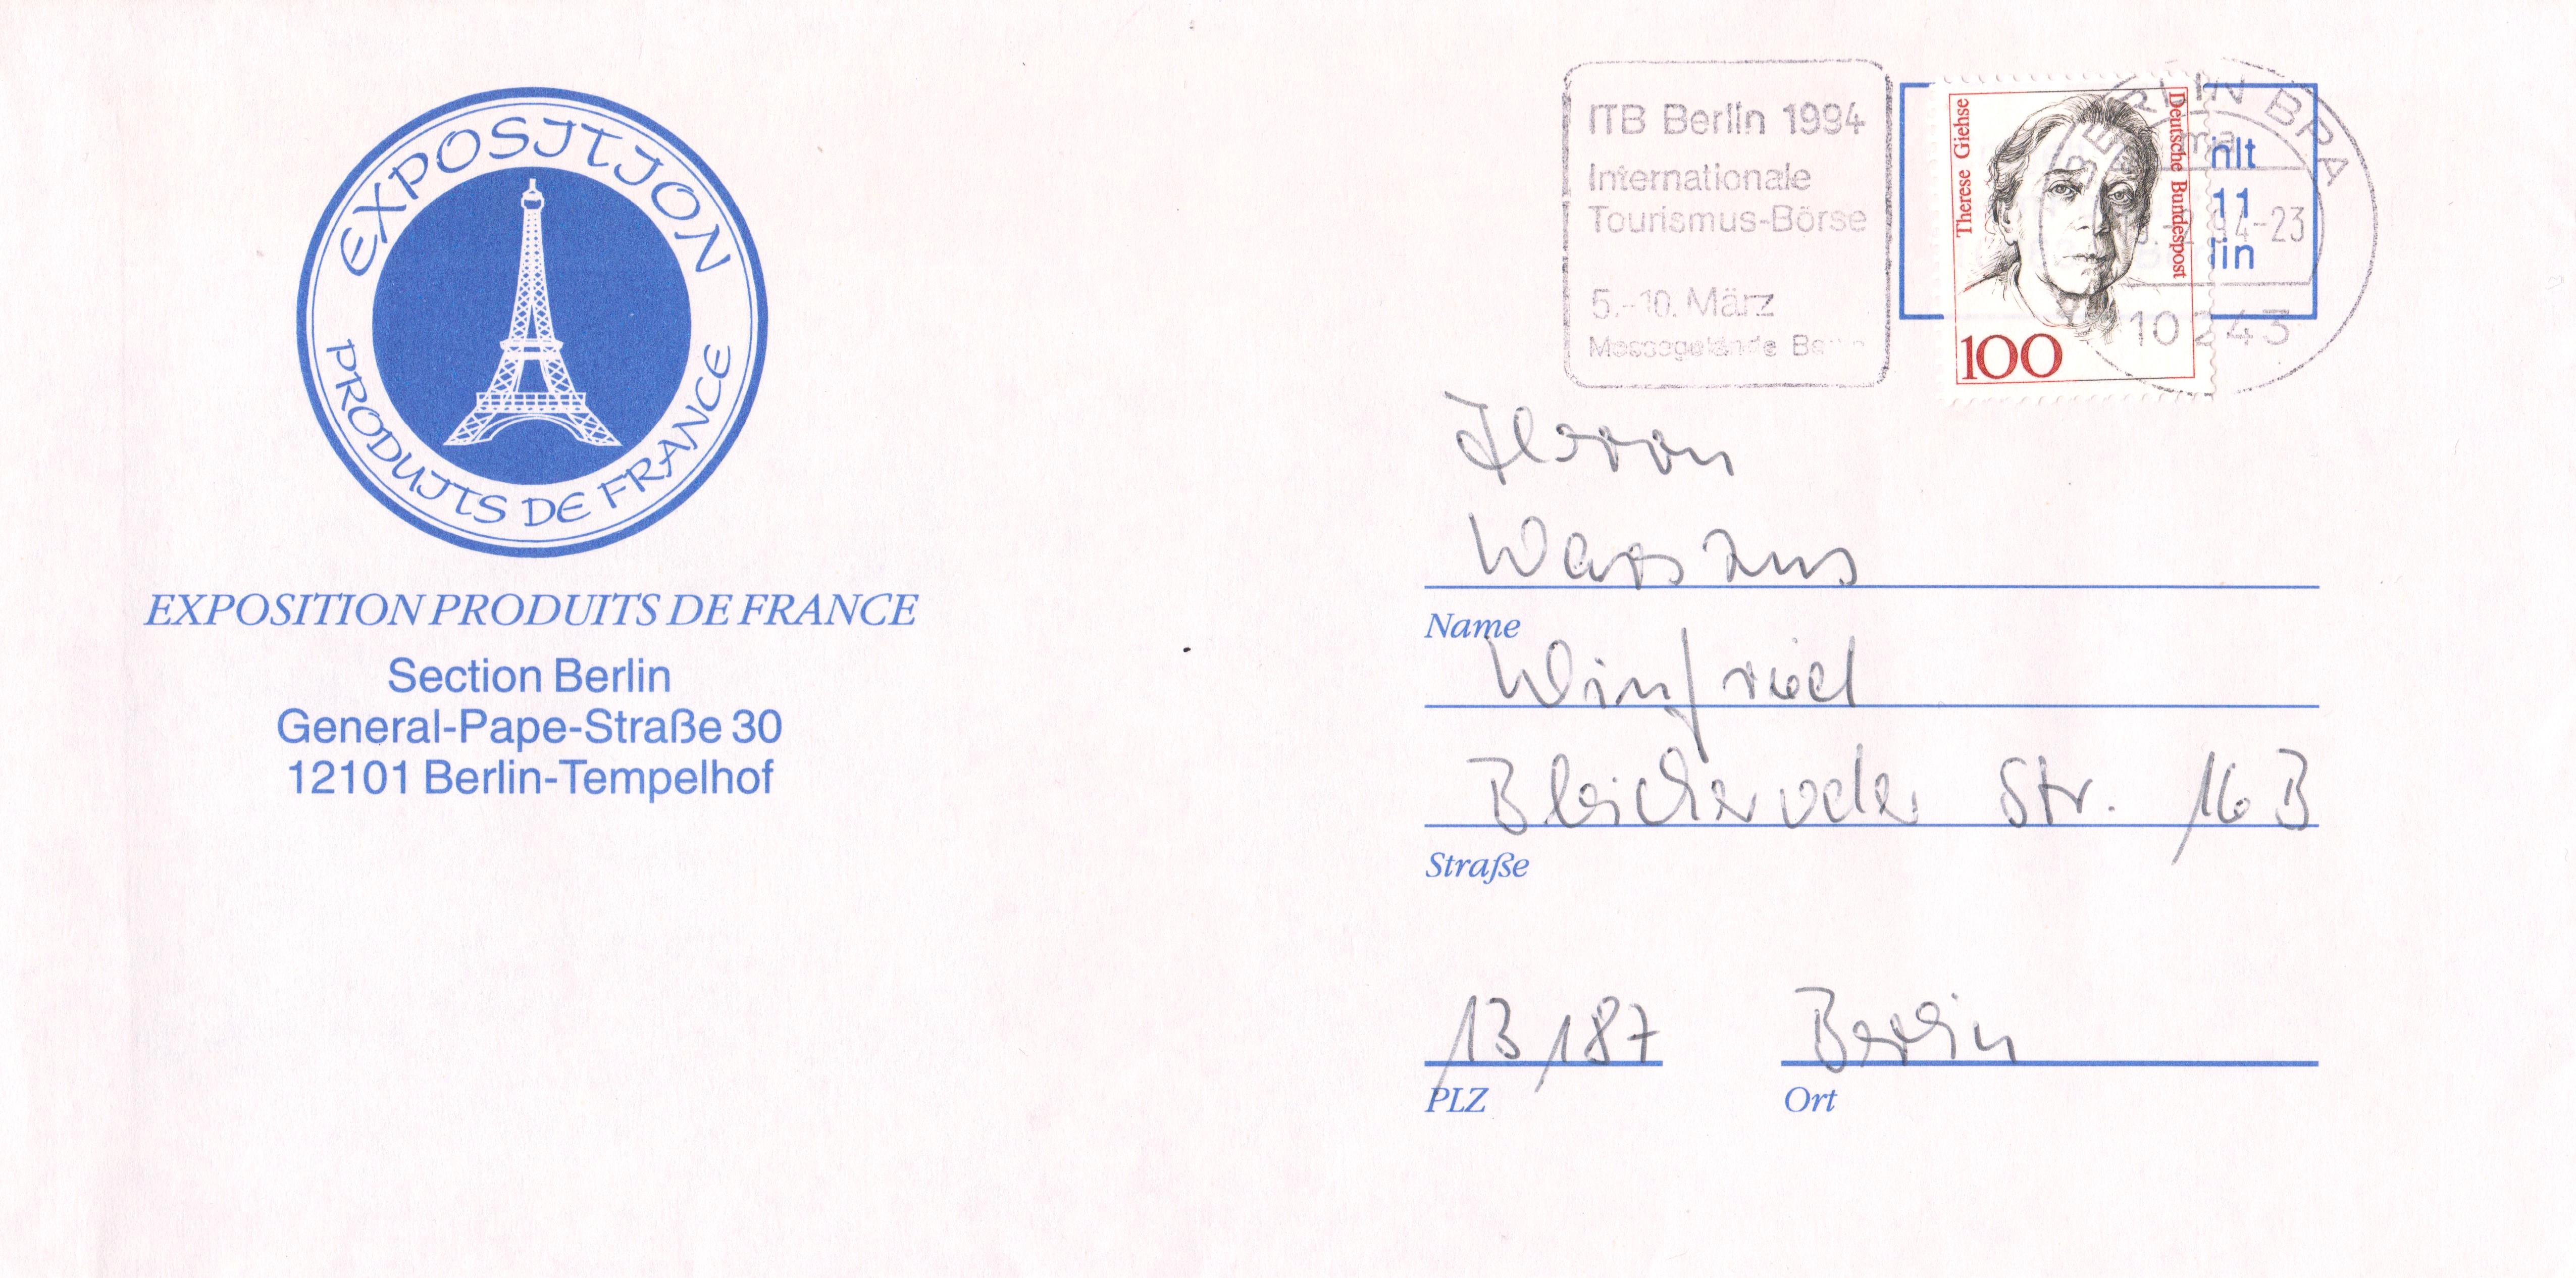 EXPOSITION
PRODUITS DE FRANCE
EXPOSITION PRODUITS DE FRANCE
Section Berlin
General-Pape-Straße 30
12101 Berlin-Tempelhof
ITB Berlin 1994
Internationale
Tourismus-Börse
5.-10. März
Messegelände
Therese Giehse
Deutsche Bundespost
100
BERLIN BRA
ma
94-23
10243
nlt
11
lin
Herrn
Name
Winfried
Bleicheroder Str. 16 B
Straße
13187 Berlin
PLZ Ort